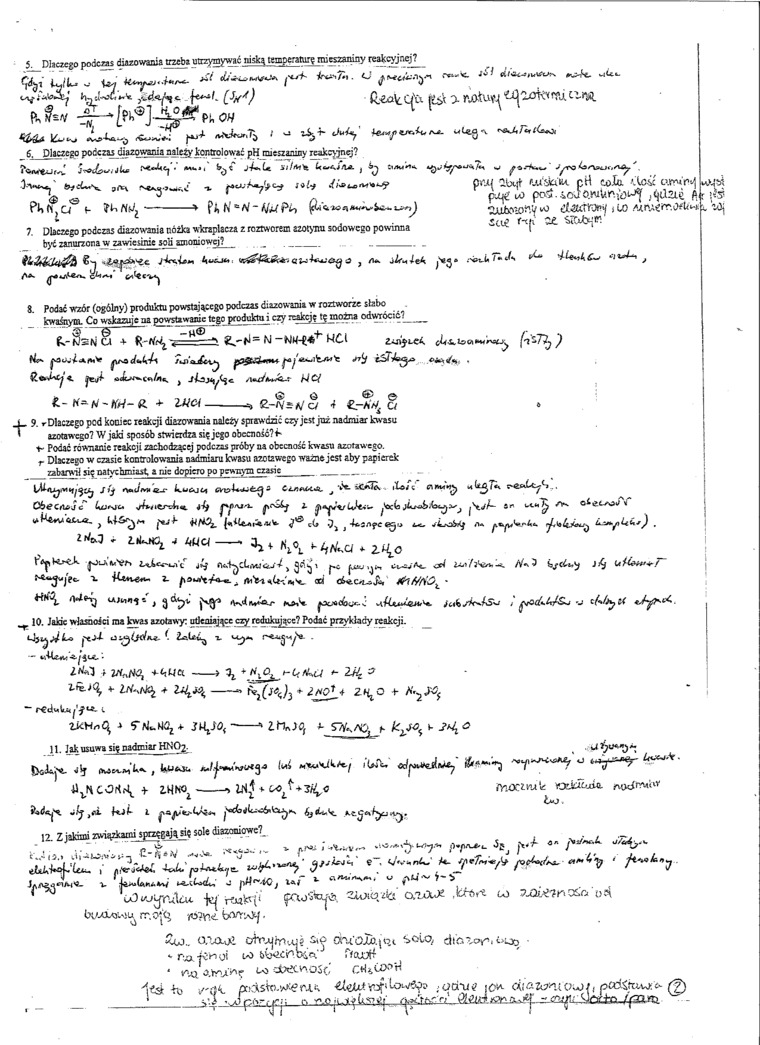 5. Dlaczego podczas diazowania trzeba utrzymywać niską temperaturę mieszaniny reakcyjnej?
Gdyż tylko w tej temperaturze sól diazoniowa jest trwała. W przeciwnym razie sól diazoniowa może ulec
hydrolizie, dając fenol. (SN1) Reakcja jest z natury egzotermiczna
Ph N≡N [Ph⊕] Ph OH
Kwas azotawy również jest nietrwały i w zbyt dużej temperaturze ulega rozkładowi
6. Dlaczego podczas diazowania należy kontrolować pH mieszaniny reakcyjnej?
Ponieważ środowisko reakcji musi być stale silnie kwaśne, by amina występowała w postaci sprotonowanej.
Inaczej będzie ona reagować z powstającą solą diazoniową przy zbyt niskim pH cała ilość aminy wyst
puje w post. soli amoniowej, gdzie Ar jest
zubożony w elektrony, co uniemożliwia zaj
ście rkcji ze słabym
PhN₂Cl + PhNH₂ ⟶ PhN=N-NHPh (diazoaminobenzen)
7. Dlaczego podczas diazowania nóżka wkraplacza z roztworem azotynu sodowego powinna
być zanurzona w zawiesinie soli amoniowej?
By zapobiec stratom kwasu azotawego, na skutek jego rozkładu do tlenków azotu,
na powierzchni cieczy
8. Podać wzór (ogólny) produktu powstającego podczas diazowania w roztworze słabo
kwaśnym. Co wskazuje na powstawanie tego produktu i czy reakcję tę można odwrócić?
R-N≡N Cl + R-NH₂ ⇌ R-N=N-NH-R + HCl związek diazoaminowy (żółty)
Na powstanie produktu świadczy pojawienie się żółtego osadu.
Reakcja jest odwracalna, stosując nadmiar HCl
R-N=N-NH-R + 2HCl ⟶ R-N≡N Cl + R-NH₃ Cl
9. Dlaczego pod koniec reakcji diazowania należy sprawdzić czy jest już nadmiar kwasu
azotawego? W jaki sposób stwierdza się jego obecność?
Podać równanie reakcji zachodzącej podczas próby na obecność kwasu azotawego.
Dlaczego w czasie kontrolowania nadmiaru kwasu azotawego ważne jest aby papierek
zabarwił się natychmiast, a nie dopiero po pewnym czasie
Utrzymujący się nadmiar kwasu azotawego oznacza, że cała ilość aminy uległa reakcji.
Obecność kwasu stwierdza się poprzez próbę z papierkiem jodoskrobiowym, jest on czuły na obecność
utleniacza, którym jest HNO₂ (utlenianie J⊖ do J₂, tworzącego ze skrobią na papierku fioletowy kompleks).
2NaJ + 2NaNO₂ + 4HCl ⟶ J₂ + N₂O₂ + 4NaCl + 2H₂O
Papierek powinien zabarwić się natychmiast, gdyż po pewnym czasie od zwilżenia NaJ będzie się utleniał
reagując z tlenem z powietrza, niezależnie od obecności HNO₂.
HNO₂ należy usunąć, gdyż jego nadmiar może powodować utlenienie substratów i produktów w dalszych etapach.
10. Jakie własności ma kwas azotawy: utleniające czy redukujące? Podać przykłady reakcji.
Wszystko jest względne! Zależy z czym reaguje.
- utleniające:
2NaJ + 2NaNO₂ + 4HCl ⟶ J₂ + N₂O₂ + 4NaCl + 2H₂O
2FeSO₄ + 2NaNO₂ + 2H₂SO₄ ⟶ Fe₂(SO₄)₃ + 2NO↑ + 2H₂O + Na₂SO₄
- redukujące:
2KMnO₄ + 5NaNO₂ + 3H₂SO₄ ⟶ 2MnSO₄ + 5NaNO₃ + K₂SO₄ + 3H₂O
11. Jak usuwa się nadmiar HNO₂.
Dodaje się mocznika, kwasu sulfaminowego lub niewielkiej ilości odpowiedniej aminy rozpuszczonej w używanym kwasie.
H₂NCONH₂ + 2HNO₂ ⟶ 2N₂↑ + CO₂↑ + 3H₂O mocznik rozkłada nadmiar
kw.
Dodaje się, aż test z papierkiem jodoskrobiowym będzie negatywny.
12. Z jakimi związkami sprzęgają się sole diazoniowe?
Kation diazoniowy R-N≡N może reagować z pierścieniem aromatycznym poprzez SE, jest on jednak słabym
elektrofilem i pierścień taki potrzebuje zwiększonej gęstości e⁻. Warunki te spełniają pochodne aniliny i fenolany.
Sprzęganie z fenolanami zachodzi w pH≈10, zaś z aminami w pH≈4-5
W wyniku tej reakcji powstają związki azowe, które w zależności od
budowy mają różne barwy.
Zw. azowe otrzymuje się działając solą diazoniową
• na fenol w obecności NaOH
• na aminę w obecność CH₃COOH
Jest to r-cja podstawienia elektrofilowego, gdzie jon diazoniowy podstawia ②
się w pozycji o największej gęstości elektronowej - czyli orto/para